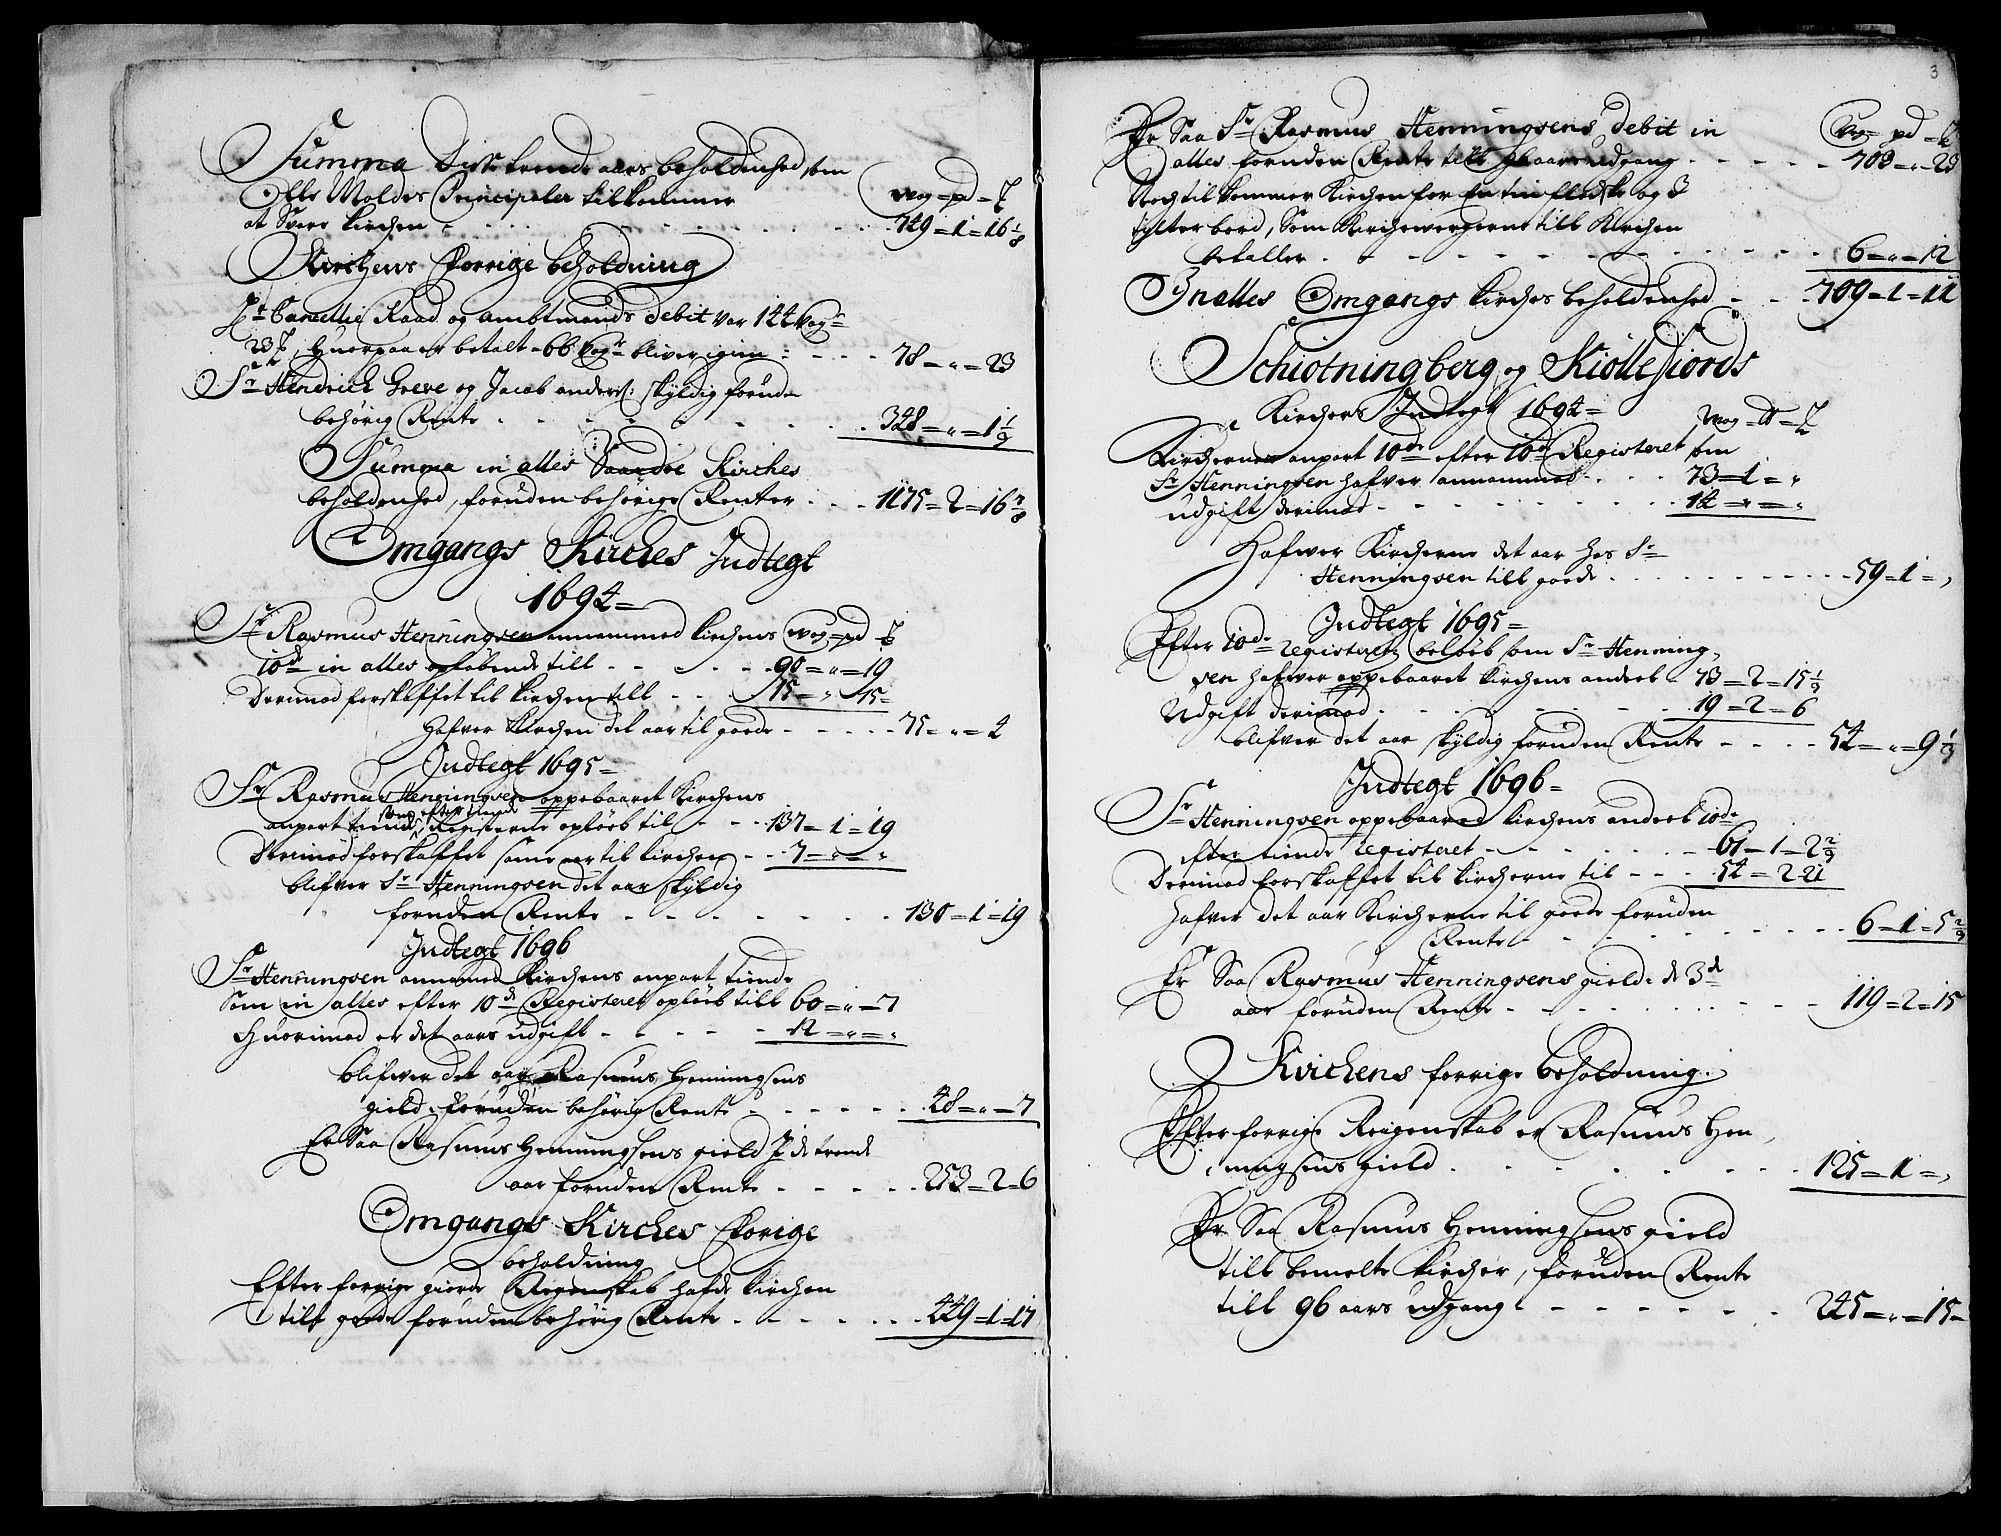 Summa Disse trende aars beholdenhed som
Olle Moldes Principaler tilkommer wog = pd = ℔
at Svere kirchen - - - 749 = 1 = 16 1/8
Kirchens forrige beholdning
Hr Cancellie Raad og ambtmands debit var 144 wogr
23 ℔ Huorpaa er betalt - 66 wogr bliver igien - - - 78 = " = 23
Sr Hendrich Greve og Jacob anders: skyldig foruden
behörig Rente - - - 348 = " = 1 1/9
Summa in alles Kirches
beholdenhed, foruden behörige Renter - - - 1175 = 2 = 16
Omgangs Kirches Indtegt
1694 =
Sr Rasmus Henningsen annammed kirchens wog = pd ℔
10de in alles opløbende till - - - 90 = " = 19
Derimod forskaffet til kirchen till - - 15 = " 15 =
Hafver Kirchen det aar til goede - - - 75 = " = 4
Indtegt 1695 =
Sr Rasmus Henningsen oppebaaret Kirchens
som efter tiende
anpart tiende Registerne opløb til - - 137 = 1 = 19
Derimod forskaffet samme aar til kirchen - - 7 = " = "
blifver Sr Henningsen det aar skyldig
foruden Rente - - - 130 = 1 = 19
Indtegt 1696
Sr Henningsen annamed Kirchens anpart tiende
Som in alles efter 10de Registeret opløb till 60 = " = 7
Huorimod er det aars udgift - - - 12 = " = "
blifwer det aar Rasmus Henningsens
gield foruden behörig Rente - - - 48 = " = 7
Er Saa Rasmus Henningsens gield J de trende
aar foruden Rente - - - 253 = 2 = 6
Omgangs Kirches forige
beholdning
Efter forrige giorde Regenskab hafde kirchen
till goede foruden behörig Rente - - - 449 = 1 = 17
3
Er Saa Sr Rasmus Henningsens debit in wog pd = ℔
alles foruden Rente till 96 aars udgang - - - 703 = " = 23
Noch tilkommer Kirchen for En tin fladske og 3
tylter bord, Som Kirchewergerne till Kirchen
betaller - - - 6 = " = 12
In alles Omgangs kirches beholdenhed - - 709 = 1 = 11
Schiotningberg og Kiollefiords
Kirchers Indtegt 1694 = wog = ℔ = ℔
Kirchernes anpart 10de efter 10de Registeret som
Sr Henningsen hafver annammet - - 73 = 1 = "
udgift derimod - - - 14 = " = "
Hafwer Kircherne det aar hos Sr
Henningsen till goede - - - 59 = 1 = "
Indtegt 1695 =
Efter 10de registeret beløb som Sr Henning,
sen hafwer oppebaaret kirchens andeel - 73 = 2 = 15 1/3
Udgift derimod - - - 19 = 2 = 6
blifver det aar skyldig foruden Rente - - - 54 = " = 9 1/3
Indtegt 1696 =
Sr Henningsen oppebaaret kirchens andeel 10de
efter tiende registeret - - - 61 - 1 = 2 2/9
Derimod forskaffet til kircherne til - - - 54 = 2 21
hafver det aar Kircherne til goede foruden
Rente - - - 6 = 1 = 5 2/9
Er Saa Rasmus Henningsens gield: de 3de
aar foruden Rente - - - 119 = 2 = 15
Kirchens forrige beholdning.
Efter forrige Reigenskab er Rasmus Hen,
ningsens gield - - - 125 = 1 = "
Er Saa Rasmus Henningsens gield
till bemelte kircher, foruden Rente
till 96 aars udgang - - - 245 = " = 15 =